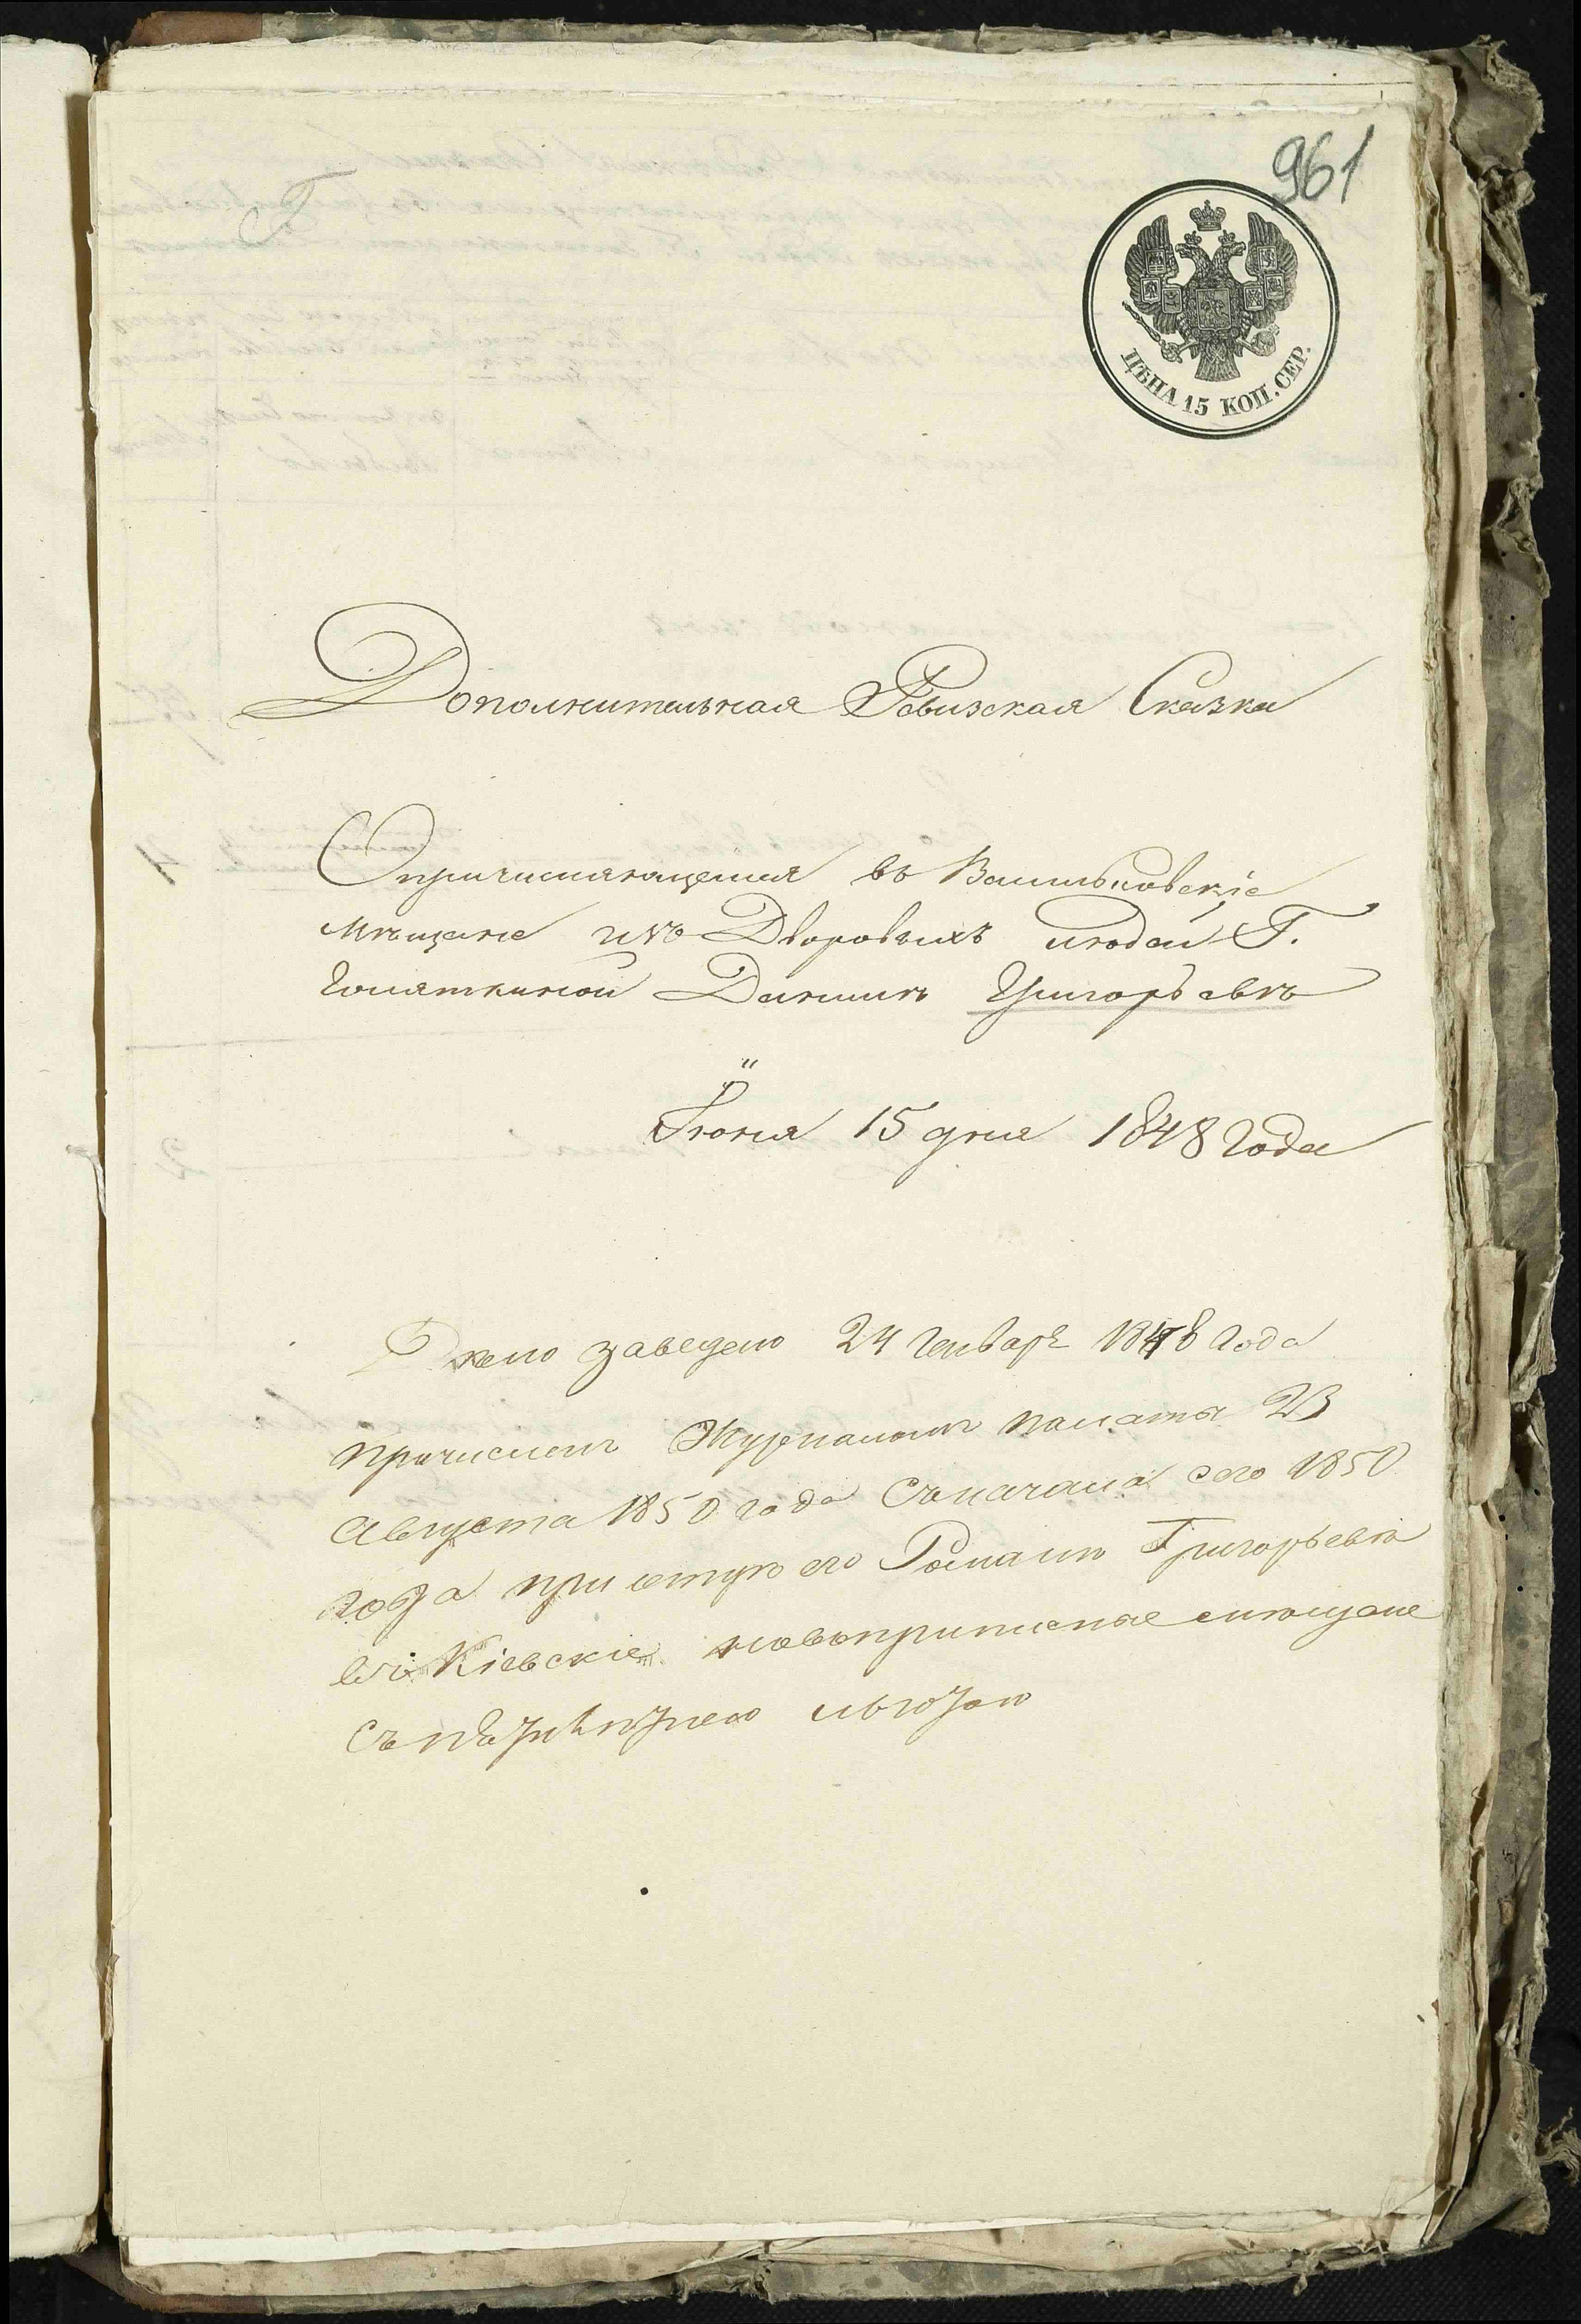 961
ЦѢНА 15 КОП. СЕР.
Г
Дополнительная Ревизская Сказка
О причисляющемся въ Васильковскіе
мѣщане изъ Дворовыхъ людей Г.
Голяткиной Данилѣ Григорьевѣ
Іюня 15 дня 1848 года
Дѣло заведено 24 Генваря 1848 года
Причисленъ Журналомъ палаты 23
Августа 1850 года Съ начала сего 1850
года при отцѣ его Романѣ Григорьевѣ
въ Кіевскіе новоприписные мѣщане
Съ льготою